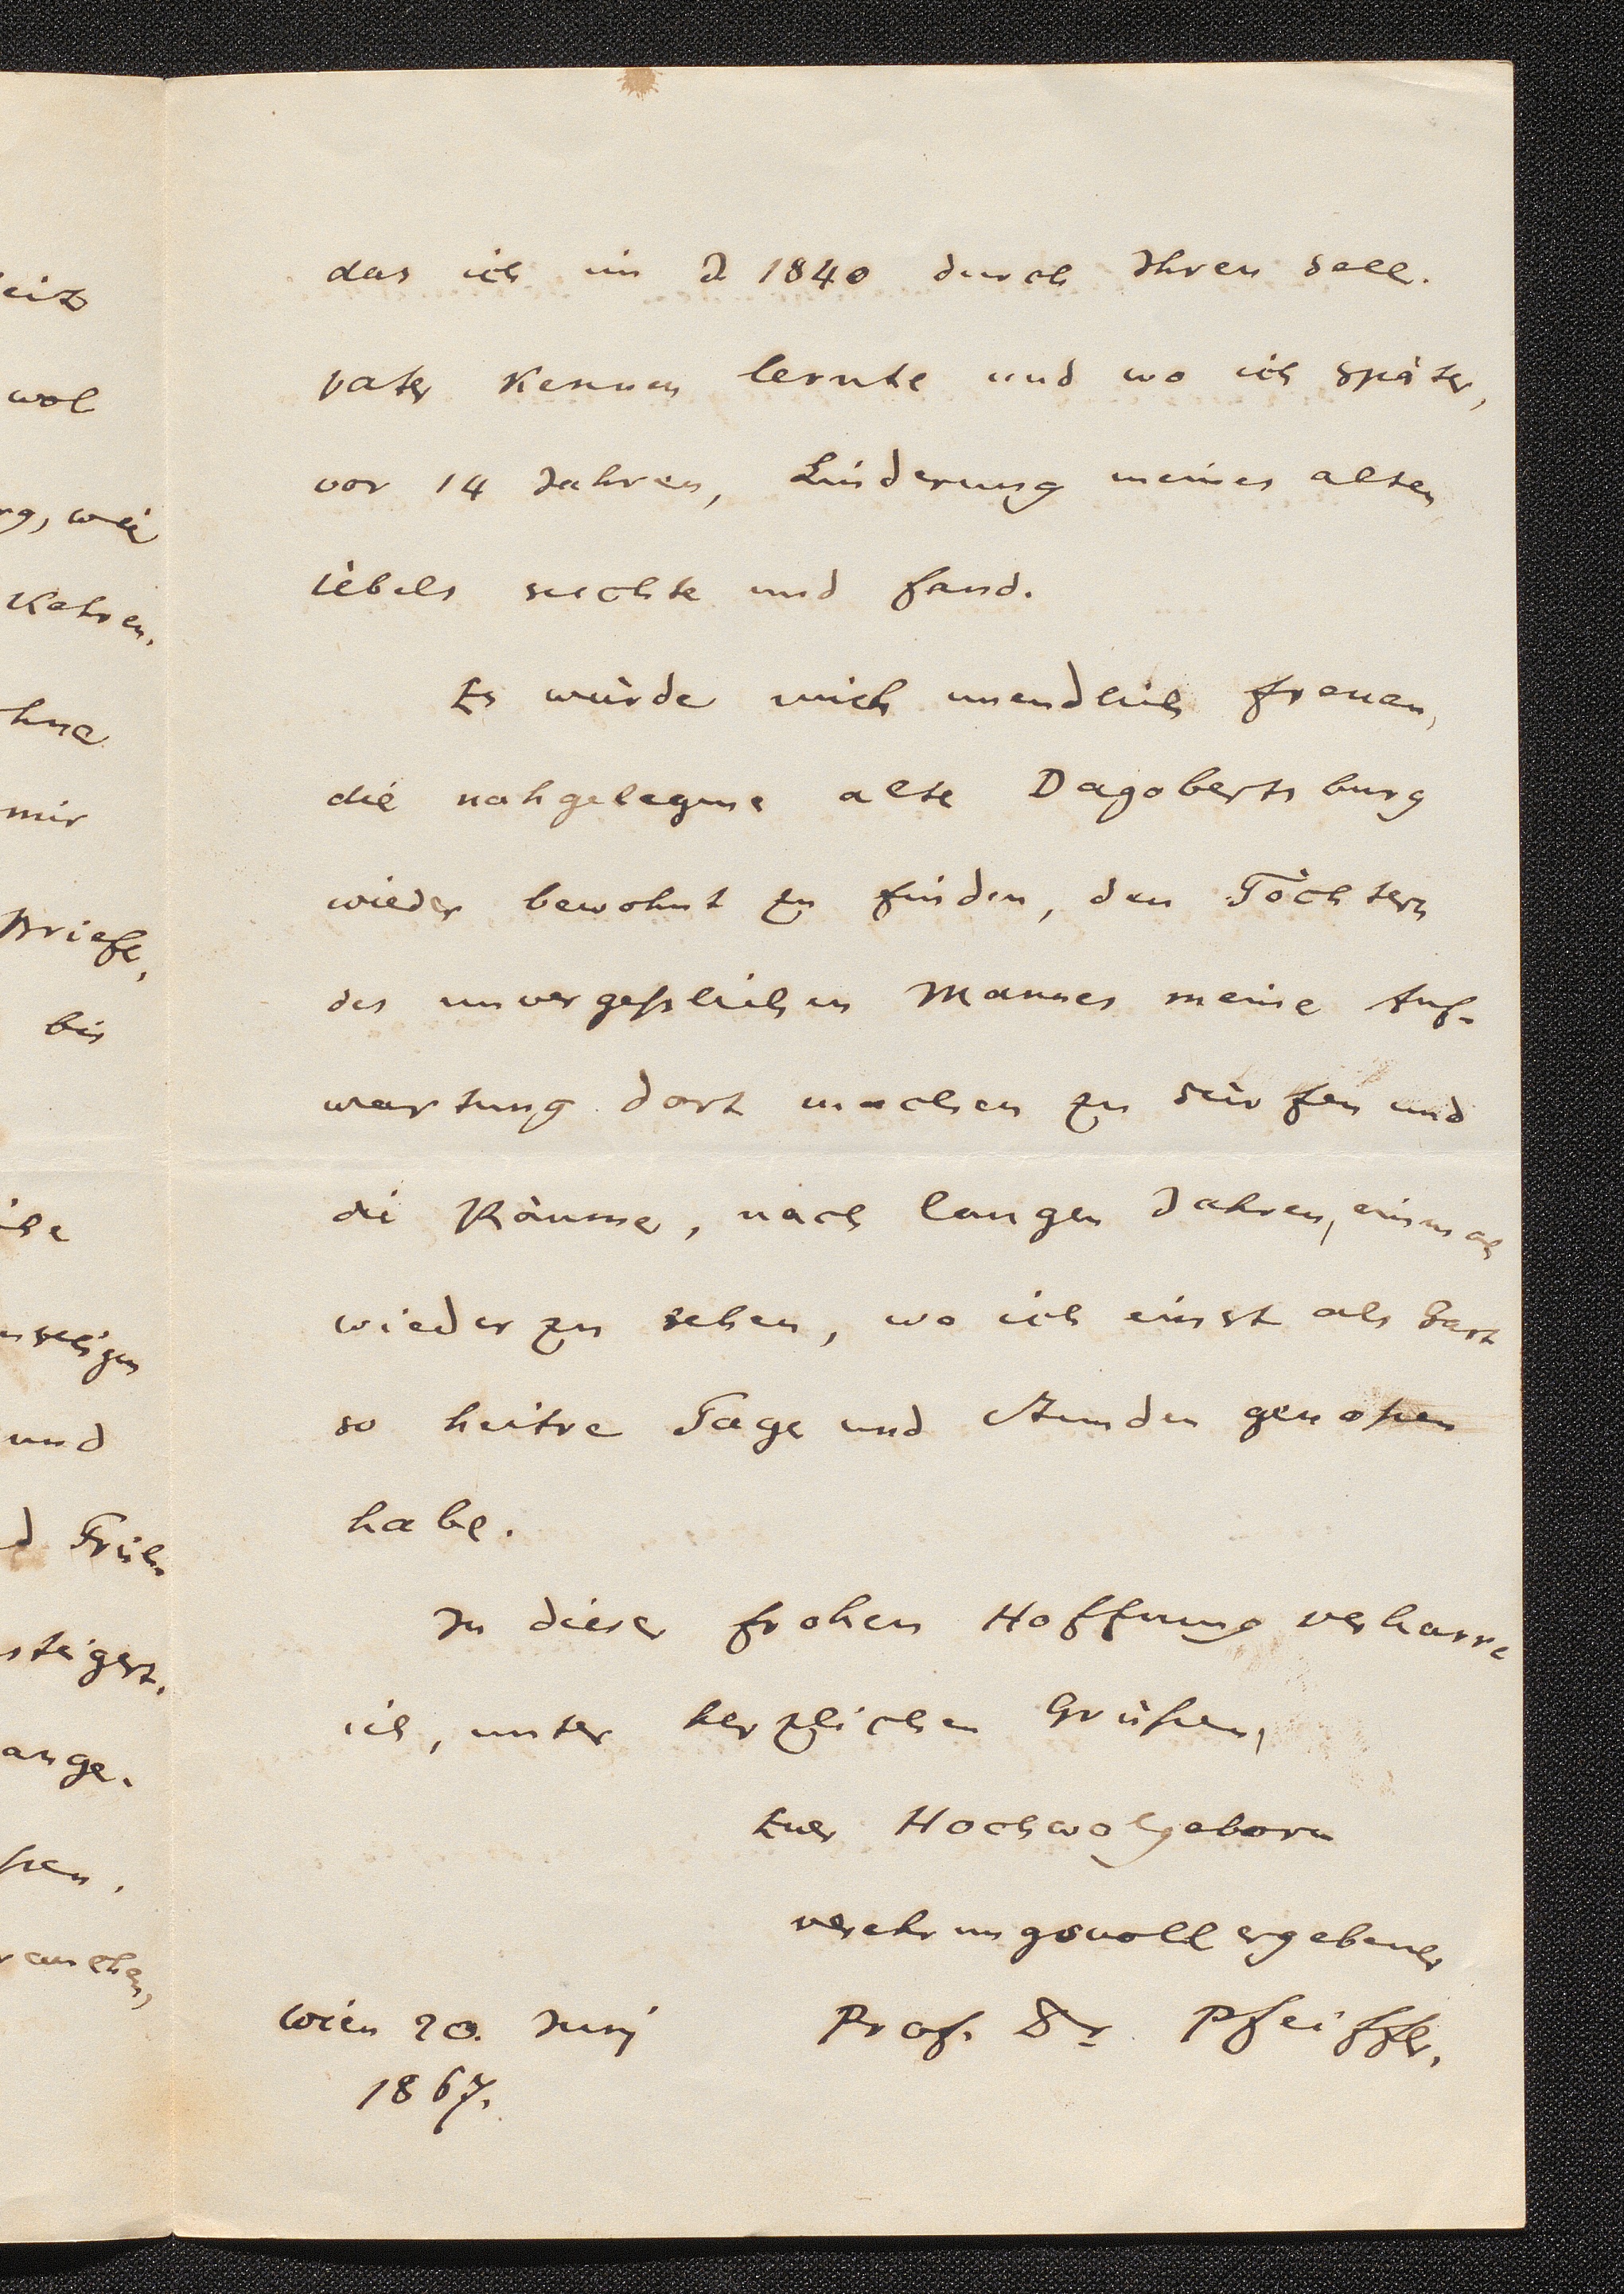 eit
wol
ng, wie
Kehren.
hne
mir
Briefe,
bis
ihe
nseligen
und
d Früh-
steigert.
ange.
ßen.
rauchen,
das ich im J 1840 durch Ihren seel.
Vater Kennen lernte und wo ich später,
vor 14 Jahren, Linderung meines alten
Uebels suchte und fand.
Es würde mich unendlich freuen,
die nahgelegene alte Dagobertsburg
wieder bewohnt zu finden, den Töchtern
des unvergeßlichen Mannes meine Auf-
wartung dort machen zu dürfen und
die Räume, nach langen Jahren, einmal
wieder zu sehen, wo ich einst als Gast
so heitre Tage und Stunden genoßen
habe.
In dieser frohen Hoffnung verharre
ich, unter herzlichen Grüßen,
Euer Hochwolgeborn
verehrungsvoll ergebener
Wien 20. Juni Prof. Dr Pfeiffer.
1867.